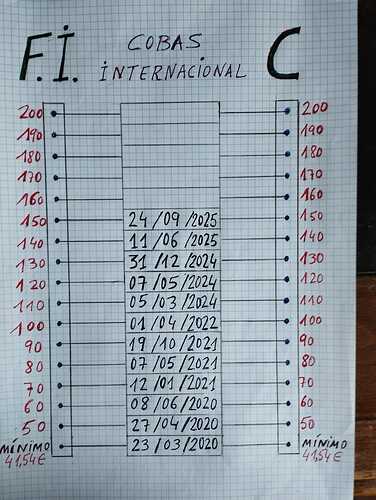 F.I. COBAS INTERNACIONAL C
200 200
190 190
180 180
170 170
160 160
150 24/09/2025 150
140 11/06/2025 140
130 31/12/2024 130
120 07/05/2024 120
110 05/03/2024 110
100 01/04/2022 100
90 19/10/2021 90
80 07/05/2021 80
70 12/01/2021 70
60 08/06/2020 60
50 27/04/2020 50
MÍNIMO 23/03/2020 MÍNIMO
41,54€ 41,54€